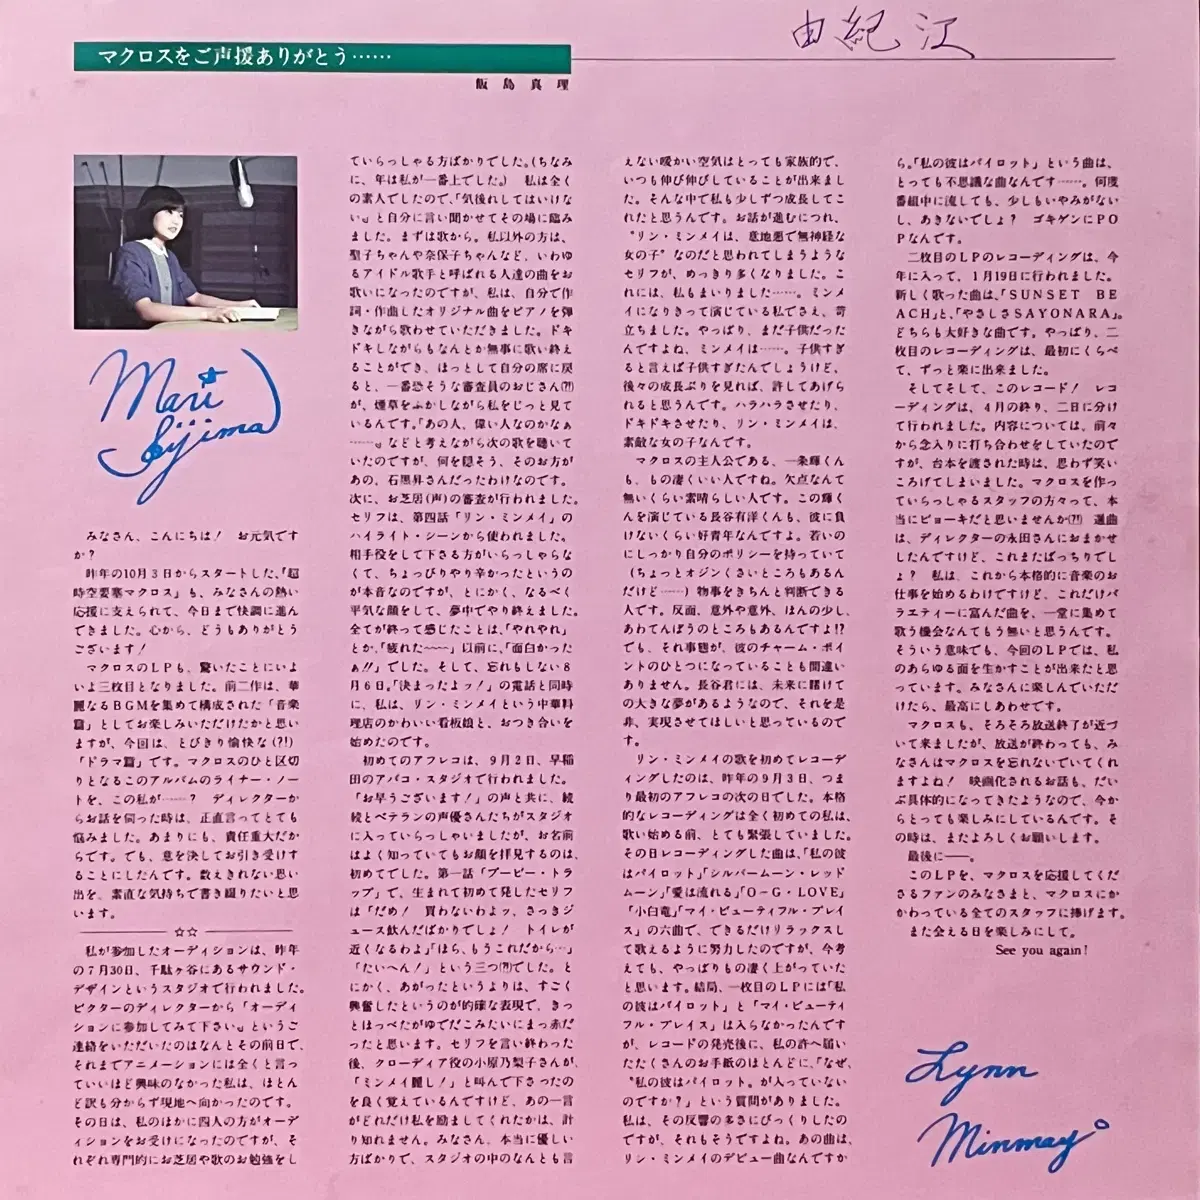 由紀江
マクロスをご声援ありがとう……
飯島真理
Mari
Iijima
みなさん、こんにちは! お元気です
か?
昨年の10月3日からスタートした、「超
時空要塞マクロス」も、みなさんの熱い
応援に支えられて、今日まで快調に進ん
できました。心から、どうもありがとう
ございます!
マクロスのLPも、驚いたことにいよ
いよ三枚目となりました。前二作は、華
麗なるBGMを集めて構成された「音楽
篇」としてお楽しみいただけたかと思い
ますが、今回は、とびきり愉快な(?!)
「ドラマ篇」です。マクロスのひと区切
りとなるこのアルバムのライナー・ノー
トを、この私が……? ディレクターか
らお話を伺った時は、正直言ってとても
悩みました。あまりにも、責任重大だか
らです。でも、意を決してお引き受けす
ることにしたんです。数えきれない思い
出を、素直な気持ちで書き綴りたいと思
います。
☆☆
私が参加したオーディションは、昨年
の7月30日、千駄ヶ谷にあるサウンド・
デザインというスタジオで行われました。
ビクターのディレクターから「オーディ
ションに参加してみて下さい」というご
連絡をいただいたのはなんとその前日で、
それまでアニメーションには全くと言っ
ていいほど興味のなかった私は、ほとん
ど訳も分からず現地へ向かったのです。
その日は、私のほかに四人の方がオーデ
ィションをお受けになったのですが、そ
れぞれ専門的にお芝居や歌のお勉強をし
ていらっしゃる方ばかりでした。(ちなみ
に、年は私が一番上でした。) 私は全く
の素人でしたので、「気後れしてはいけな
い」と自分に言い聞かせてその場に臨み
ました。まずは歌から。私以外の方は、
聖子ちゃんや奈保子ちゃんなど、いわゆ
るアイドル歌手と呼ばれる人達の曲をお
歌いになったのですが、私は、自分で作
詞・作曲したオリジナル曲をピアノを弾
きながら歌わせていただきました。ドキ
ドキしながらもなんとか無事に歌い終え
ることができ、ほっとして自分の席に戻
ると、一番恐そうな審査員のおじさん(?!)
が、煙草をふかしながら私をじっと見て
いるんです。「あの人、偉い人なのかなぁ
……」などと考えながら次の歌を聴いて
いたのですが、何を隠そう、そのお方が
あの、石黒昇さんだったわけなのです。
次に、お芝居(声)の審査が行われました。
セリフは、第四話「リン・ミンメイ」の
ハイライト・シーンから使われました。
相手役をして下さる方がいらっしゃらな
くて、ちょっぴりやり辛かったというの
が本音なのですが、とにかく、なるべく
平気な顔をして、夢中でやり終えました。
全てが終って感じたことは、「やれやれ」
とか、「疲れた〜〜」以前に、「面白かった
ぁ!!」でした。そして、忘れもしない8
月6日。「決まったよッ!」の電話と同時
に、私は、リン・ミンメイという中華料
理店のかわいい看板娘と、おつき合いを
始めたのです。
初めてのアフレコは、9月2日、早稲
田のアバコ・スタジオで行われました。
「お早うございます!」の声と共に、続
続とベテランの声優さんたちがスタジオ
に入っていらっしゃいましたが、お名前
はよく知っていてもお顔を拝見するのは、
初めてでした。第一話「ブービー・トラ
ップ」で、生まれて初めて発したセリフ
は「だめ! 買わないわよッ、さっきジ
ュース飲んだばかりでしょ! トイレが
近くなるわよ」「ほら、もうこれだから…」
「たいへん!」という三つ(?)でした。と
にかく、あがったというよりは、すごく
興奮したというのが的確な表現で、きっ
とほっぺたがゆでだこみたいにまっ赤だ
ったと思います。セリフを言い終わった
後、クローディア役の小原乃梨子さんが、
「ミンメイ麗し!」と叫んで下さったの
を良く覚えているんですけど、あの一言
がどれだけ私を励ましてくれたかは、計
り知れません。みなさん、本当に優しい
方ばかりで、スタジオの中のなんとも言
えない暖かい空気はとっても家族的で、
いつも伸び伸びしていることが出来まし
た。そんな中で私も少しずつ成長してこ
れたと思うんです。お話が進むにつれ、
〝リン・ミンメイは、意地悪で無神経な
女の子〟なのだと思われてしまうような
セリフが、めっきり多くなりました。こ
れには、私もまいりました……。ミンメ
イになりきって演じている私でさえ、苛
立ちました。やっぱり、まだ子供だった
んですよね、ミンメイは……。子供すぎ
ると言えば子供すぎたんでしょうけど、
後々の成長ぶりを見れば、許してあげら
れると思うんです。ハラハラさせたり、
ドキドキさせたり、リン・ミンメイは、
素敵な女の子なんです。
マクロスの主人公である、一条輝くん
も、もの凄くいい人ですね。欠点なんて
無いくらい素晴らしい人です。この輝く
んを演じている長谷有洋くんも、彼に負
けないくらい好青年なんですよ。若いの
にしっかり自分のポリシーを持っていて
(ちょっとオジンくさいところもあるん
だけど……)物事をきちんと判断できる
人です。反面、意外や意外、ほんの少し、
あわてんぼうのところもあるんですよ!?
でも、それ事態が、彼のチャーム・ポイ
ントのひとつになっていることも間違い
ありません。長谷君には、未来に賭けて
の大きな夢があるようなので、それを是
非、実現させてほしいと思っているので
す。
リン・ミンメイの歌を初めてレコーデ
ィングしたのは、昨年の9月3日、つま
り最初のアフレコの次の日でした。本格
的なレコーディングは全く初めての私は、
歌い始める前、とても緊張していました。
その日レコーディングした曲は、「私の彼
はパイロット」「シルバームーン・レッド
ムーン」「愛は流れる」「O-G・LOVE」
「小白竜」「マイ・ビューティフル・プレイ
ス」の六曲で、できるだけリラックスし
て歌えるように努力したのですが、今考
えても、やっぱりもの凄く上がっていた
と思います。結局、一枚目のLPには「私
の彼はパイロット」と「マイ・ビューティ
フル・プレイス」は入らなかったんです
が、レコードの発売後に、私の許へ届い
たたくさんのお手紙のほとんどに、「なぜ、
〝私の彼はパイロット〟が入っていない
のですか?」という質問がありました。
私は、その反響の多さにびっくりしたの
ですが、それもそうですよね。あの曲は、
リン・ミンメイのデビュー曲なんですか
ら。「私の彼はパイロット」という曲は、
とっても不思議な曲なんです……。何度
番組中に流しても、少しもいやみがない
し、あきないでしょ? ゴキゲンにPO
Pなんです。
二枚目のLPのレコーディングは、今
年に入って、1月19日に行われました。
新しく歌った曲は、「SUNSET BE
ACH」と、「やさしさSAYONARA」。
どちらも大好きな曲です。やっぱり、二
枚目のレコーディングは、最初にくらべ
て、ずっと楽に出来ました。
そしてそして、このレコード! レコ
ーディングは、4月の終り、二日に分け
て行われました。内容については、前々
から念入りに打ち合わせをしていたので
すが、台本を渡された時は、思わず笑い
ころげてしまいました。マクロスを作っ
ていらっしゃるスタッフの方々って、本
当にビョーキだと思いませんか(?!) 選曲
は、ディレクターの永田さんにおまかせ
したんですけど、これまたばっちりでし
ょ? 私は、これから本格的に音楽のお
仕事を始めるわけですけど、これだけバ
ラエティーに富んだ曲を、一堂に集めて
歌う機会なんてもう無いと思うんです。
そういう意味でも、今回のLPでは、私
のあらゆる面を生かすことが出来たと思
っています。みなさんに楽しんでいただ
けたら、最高にしあわせです。
マクロスも、そろそろ放送終了が近づ
いて来ましたが、放送が終わっても、み
なさんはマクロスを忘れないでいてくれ
ますよね! 映画化されるお話も、だい
ぶ具体的になってきたようなので、今か
らとっても楽しみにしているんです。そ
の時は、またよろしくお願いします。
最後に――。
このLPを、マクロスを応援してくだ
さるファンのみなさまと、マクロスにか
かわっている全てのスタッフに捧げます。
また会える日を楽しみにして。
See you again!
Lynn
Minmay